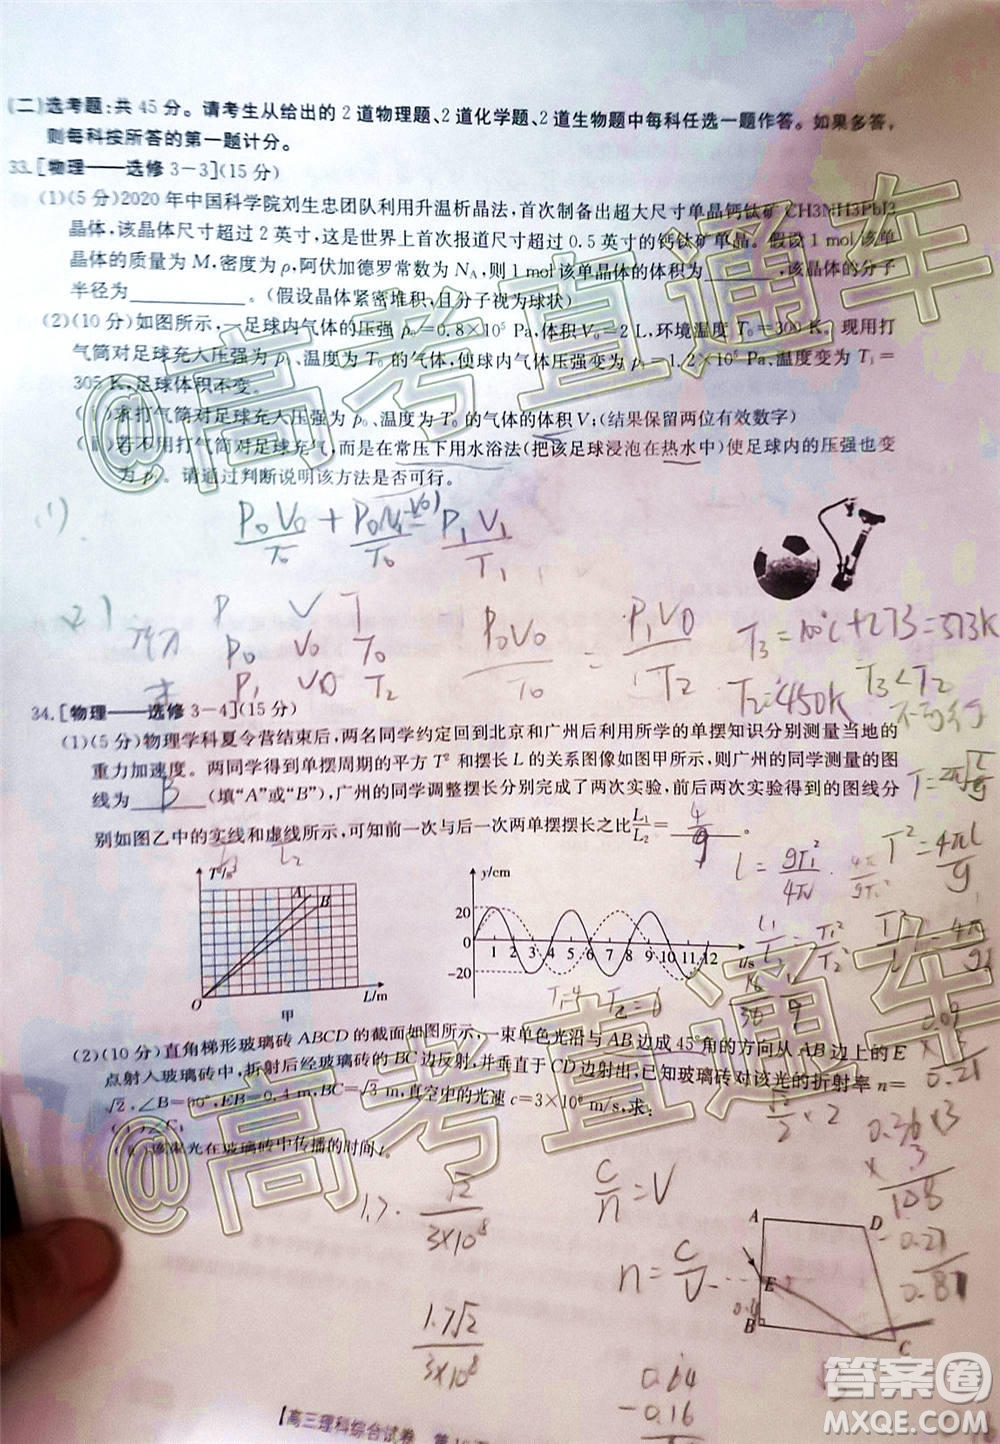 (二)选考题:共 45 分。请考生从给出的 2 道物理题、2 道化学题、2 道生物题中每科任选一题作答。如果多答,
则每科按所答的第一题计分。
33.[物理——选修 3-3](15 分)
(1)(5 分)2020 年中国科学院刘生忠团队利用升温析晶法,首次制备出超大尺寸单晶钙钛矿 CH3NH3PbI3
晶体,该晶体尺寸超过 2 英寸,这是世界上首次报道尺寸超过 0.5 英寸的钙钛矿单晶。假设 1 mol 该单
晶体的质量为 M,密度为 ρ,阿伏加德罗常数为 N_A,则 1 mol 该单晶体的体积为________,该晶体的分子
半径为________。(假设晶体紧密堆积,且分子视为球状)
(2)(10 分)如图所示,一足球内气体的压强 p₀=0.8×10⁵ Pa,体积 V₀=2 L,环境温度 T₀=300 K。现用打
气筒对足球充入压强为 p₀、温度为 T₀ 的气体,使球内气体压强变为 p₁=1.2×10⁵ Pa、温度变为 T₁=
305 K,足球体积不变。
(ⅰ)求打气筒对足球充入压强为 p₀、温度为 T₀ 的气体的体积 V;(结果保留两位有效数字)
(ⅱ)若不用打气筒对足球充气,而是在常压下用水浴法(把该足球浸泡在热水中)使足球内的压强也变
为 p₁。请通过判断说明该方法是否可行。
(1)
P₀V₀/T₀ + P₀(V₁-V₀)/T₀ = P₁V₁/T₁
2)
P V T
P₀ V₀ T₀
P₁ V₀ T₂
P₀V₀/T₀ = P₁V₀/T₂
T₃=100℃+273=373K
T₂=450K T₃<T₂
不可行
34.[物理——选修 3-4](15 分)
(1)(5 分)物理学科夏令营结束后,两名同学约定回到北京和广州后利用所学的单摆知识分别测量当地的
重力加速度。两同学得到单摆周期的平方 T² 和摆长 L 的关系图像如图甲所示,则广州的同学测量的图
线为 B (填“A”或“B”),广州的同学调整摆长分别完成了两次实验,前后两次实验得到的图线分
别如图乙中的实线和虚线所示,可知前一次与后一次两单摆摆长之比L₁/L₂= 4/9 。
T²/s²
A
B
O
L/m
甲
y/cm
20
0
-20
1 2 3 4 5 6 7 8 9 10 11 12
t/s
T₁=4 T₂=6
(2)(10 分)直角梯形玻璃砖 ABCD 的截面如图所示,一束单色光沿与 AB 边成 45°角的方向从 AB 边的 E
点射入玻璃砖中,折射后经玻璃砖的 BC 边反射,并垂直于 CD 边射出。已知玻璃砖对该光的折射率 n=
√2,∠B=90°,EB=0.4 m,BC=√3 m,真空中的光速 c=3×10⁸ m/s,求:
(ⅰ)∠C;
(ⅱ)该束光在玻璃砖中传播的时间 t。
1.7·√2/3×10⁸
c/n=V
n=c/V
1.7√2/3×10⁸
A
D
E
B
C
0.64
-0.16
高三理科综合试卷 第
@高考直通车
@高考直通车
答案圈
MXQE.COM